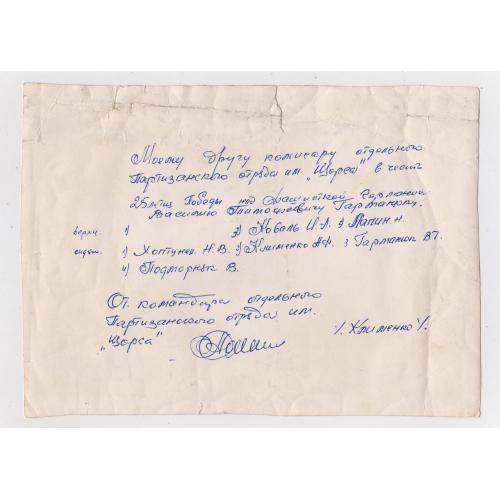 Моему другу комисару отдельного
Партизанского отряда им. "Щорса" в честь
25 летия Победы над Фашисткой Германией
Василию Тимофеевичу Гарматюку.
верхн. 1) 2) Коваль И.А. 3 Лапин.Н.
1) Хоптунец Н.В. 2) Клименко А.Ф. 3 Гарматюк ВТ.
4) Подторнук В.
От. командира отдельного
Партизанского отряда им.
"Щорса" /. Клименко /.